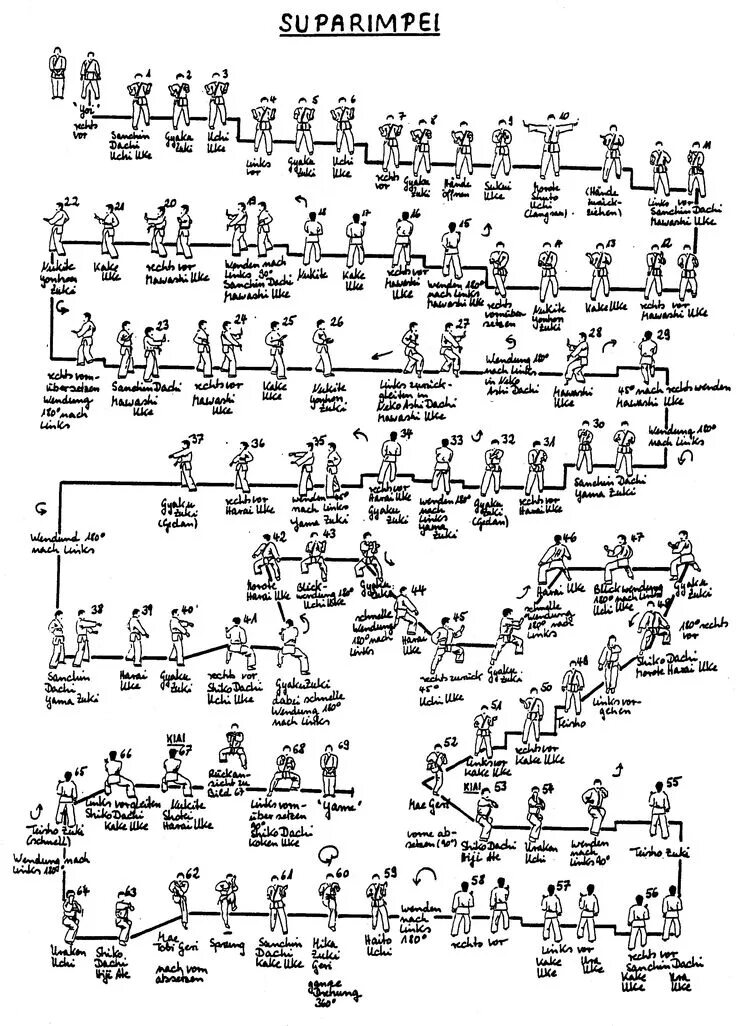 SUPARIMPEI
"Yoi"
rechts
vor
1
Sanchin
Dachi
Uchi Uke
2
Gyaku
Zuki
3
Uchi
Uke
4
Links
vor
5
Gyaku
Zuki
6
Uchi
Uke
7
rechts
vor
8
Gyaku
Zuki
Hände
öffnen
9
Sukui
Uke
10
Morote
Shuto
Uchi
(langsam)
(Hände
zurück-
ziehen)
Links vor
Sanchin Dachi
Mawashi Uke
11
22
Nukite
Yonhon
Zuki
21
Kake
Uke
20
rechts vor
Mawashi Uke
19
Wenden nach
Links 90°
Sanchin Dachi
Mawashi Uke
18
Nukite
17
Kake
Uke
16
rechts vor
Mawashi
Uke
15
Wenden 180°
nach Links
Mawashi Uke
rechts
vornüber
setzen
14
Nukite
Yonhon
Zuki
13
Kake Uke
12
rechts vor
Mawashi Uke
rechts vorn-
übersetzen
Wendung
180° nach
Links
23
Sanchin Dachi
Mawashi
Uke
24
rechts vor
Mawashi
Uke
25
Kake
Uke
26
Nukite
Yonhon
Zuki
27
Links zurück-
gleiten in
Neko Ashi Dachi
Mawashi
Uke
Wendung 180°
nach Links
in Neko
Ashi Dachi
28
Mawashi
Uke
29
45° nach rechts wenden
Mawashi Uke
Wendung 180°
nach Links
37
Gyaku
Zuki
(Gedan)
36
rechts vor
Harai Uke
35
wenden 45°
nach Links
Yama Zuki
34
rechts vor
Harai Uke
Gyaku
Zuki
33
wenden 180°
nach
Links
Yama Zuki
32
Gyaku
Zuki
(Gedan)
31
rechts vor
Harai Uke
30
Sanchin Dachi
Yama Zuki
Wendund 180°
nach Links
42
Morote
Harai Uke
43
Blick-
wendung 180°
Uchi Uke
Gyaku
Zuki
schnelle
Wendung
180° nach
Links
44
Harai
Uke
45
rechts zurück
45°
Uchi Uke
Gyaku
Zuki
schnelle
Wendung
180° nach
Links
46
Harai Uke
47
Blickwendung
180° nach Links
Uchi Uke
Gyaku
Zuki
48
180° rechts
vor
Shiko Dachi
Morote Harai Uke
38
Sanchin
Dachi
Yama Zuki
39
Harai
Uke
40
Gyaku
Zuki
41
rechts vor
Shiko Dachi
Uchi Uke
Gyaku Zuki
dabei schnelle
Wendung 180°
nach Links
Links vor-
gehen
49
Teisho
50
rechts vor
Kake Uke
51
Links vor
Kake Uke
52
Mae Geri
vorne ab-
setzen (90°)
KIAI
53
Shiko Dachi
Hiji Ate
54
Uraken
Uchi
wenden
nach
Links 90°
55
Teisho Zuki
65
Teisho Zuki
(schnell)
Wendung nach
Links 180°
66
Links vorgleiten
Shiko Dachi
Kake Uke
KIAI
67
Nukite
Shotei
Harai Uke
Rückan-
sicht zu
Bild 67
68
Links vorn-
über setzen
90°
Shiko Dachi
Koken Uke
69
"Yame"
64
Uraken
Uchi
63
Shiko
Dachi
Hiji Ate
62
Mae
Tobi Geri
nach vorn
absetzen
Sprung
61
Sanchin
Dachi
Kake Uke
60
Mika
Zuki
Geri
ganze
Drehung
360°
59
Haito
Uchi
wenden
nach
Links
180°
58
rechts vor
57
Links vor
Kake
Uke
Ura
Uke
56
rechts vor
Sanchin Dachi
Kake
Uke
Ura
Uke